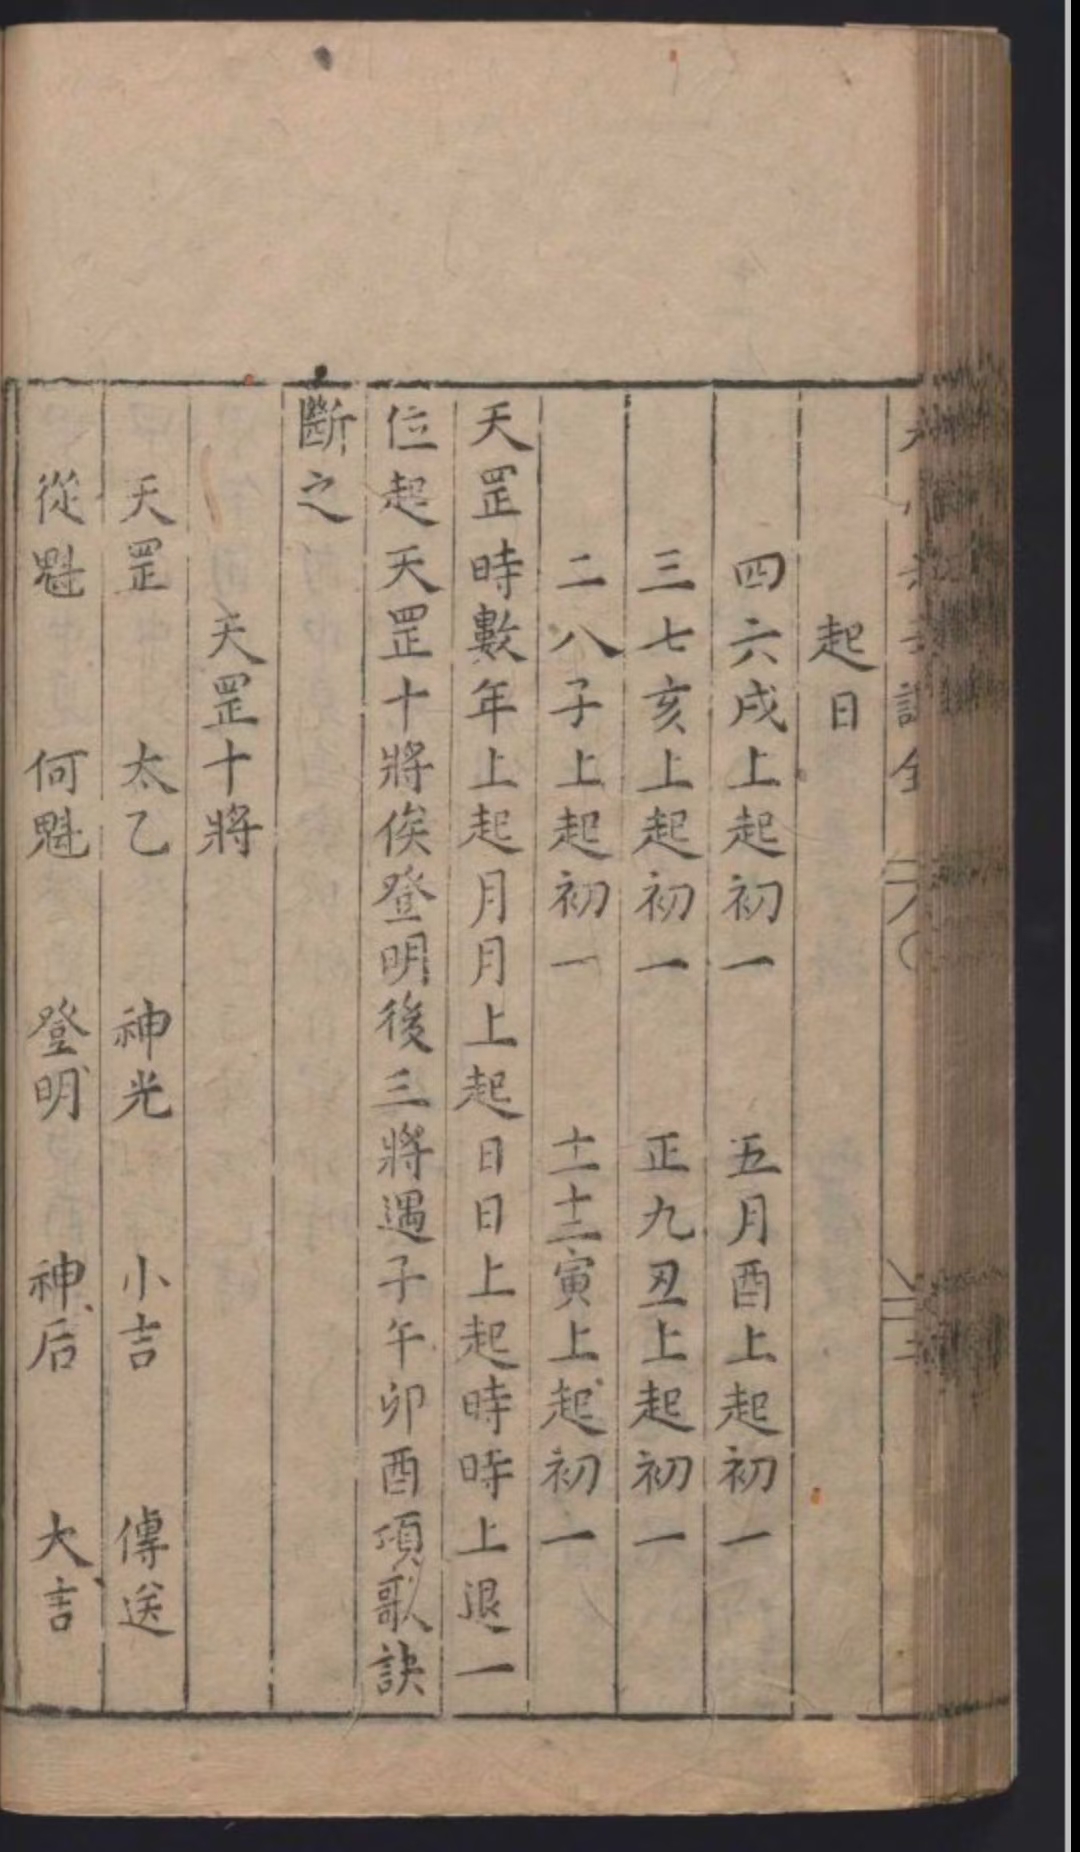 起日
四六戌上起初一　五月酉上起初一
三七亥上起初一　正九丑上起初一
二八子上起初一　十一十二寅上起初一
天罡時數年上起月月上起日日上起時時上退一
位起天罡十將俟登明後三將遇子午卯酉項歌訣
斷之
天罡十將
天罡　太乙　神光　小吉　傳送
從魁　何魁　登明　神后　大吉